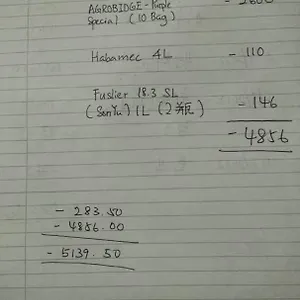 AGROBIDGE - Purple
Special (10 Bag)
Habamec 4L - 110
Fuslier 18.3 SL
(SenYu) 1L (2瓶) - 146
- 4856
- 283.50
- 4856.00
- 5139.50